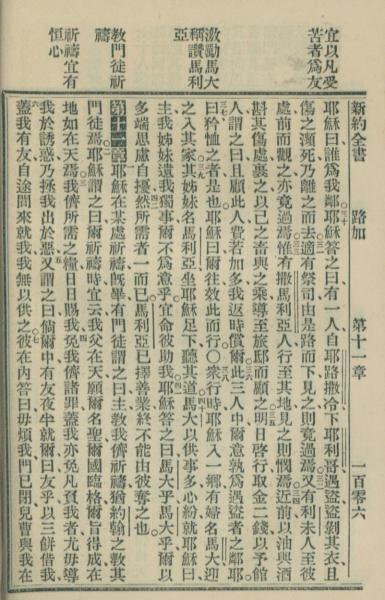 新約全書 路加 第十一章 一百零六
宜以凡受
苦者爲友
耶穌曰誰爲我鄰耶穌答之曰有一人自耶路撒冷下耶利哥遇盜盜剝其衣且
傷之瀕死乃離之而去適有祭司由是路而下見之則竟過焉又有利未人至彼
處前而觀之亦竟過焉惟有撒馬利亞人行至其地見之則憫焉近前以油與酒
斟其傷處裹之以己之畜與之乘導至旅邸而顧之明日啓行取金二錢以予館
人謂之曰且顧此人費若加多我返時償爾此三人中爾意孰爲遇盜者之鄰耶
激勵馬大
稱讚馬利
亞
曰矜恤之者是也耶穌曰爾往效此而行〇衆行時耶穌入一鄉有婦名馬大迎
之入其家其姊妹名馬利亞坐耶穌足下聽其道馬大以供事多心紛就耶穌曰
主我姊妹遺我獨事爾不爲意乎宜命彼助我耶穌答之曰馬大乎馬大乎爾以
多端思慮自擾然所需者一而已馬利亞已擇善業終不能由彼奪之也
教門徒祈
禱
第十一章 耶穌在某處祈禱旣畢有門徒謂之曰主教我儕祈禱猶約翰之教其
門徒焉耶穌謂之曰爾祈禱時宜云我父在天願爾名聖爾國臨格爾旨得成在
地如在天焉我儕所需之糧日日賜我免我儕諸罪蓋我亦免凡負我者尤毋導
祈禱宜有
恒心
我於誘惑乃拯我出於惡又謂之曰倘爾中有友夜半就爾曰友乎以三餅借我
蓋我有友自途間來就我我無以供之彼在內答曰毋煩我門已閉兒曹與我在